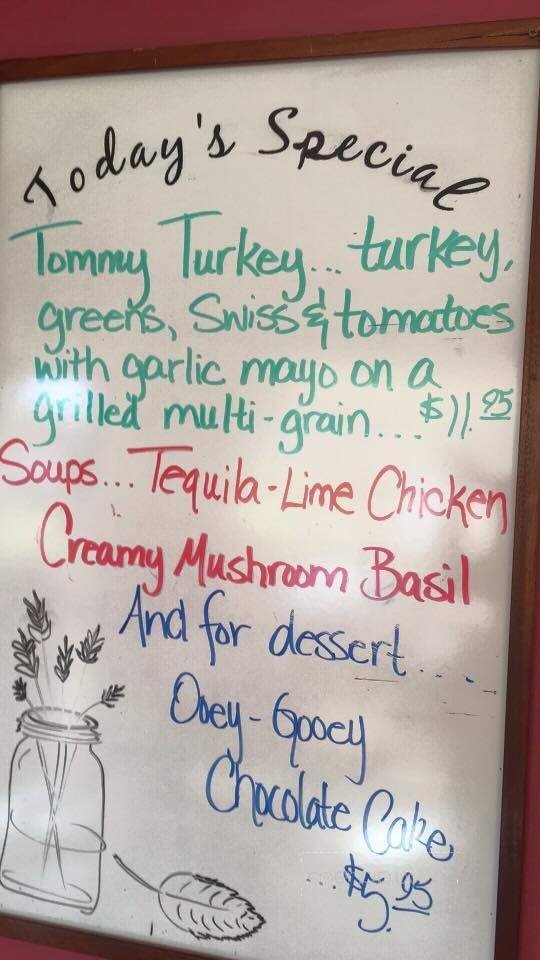 Today's Special
Tommy Turkey... turkey,
greens, Swiss & tomatoes
with garlic mayo on a
grilled multi-grain.... $11.95
Soups... Tequila-Lime Chicken
Creamy Mushroom Basil
And for dessert....
Ooey-Gooey
Chocolate Cake
...$5.95